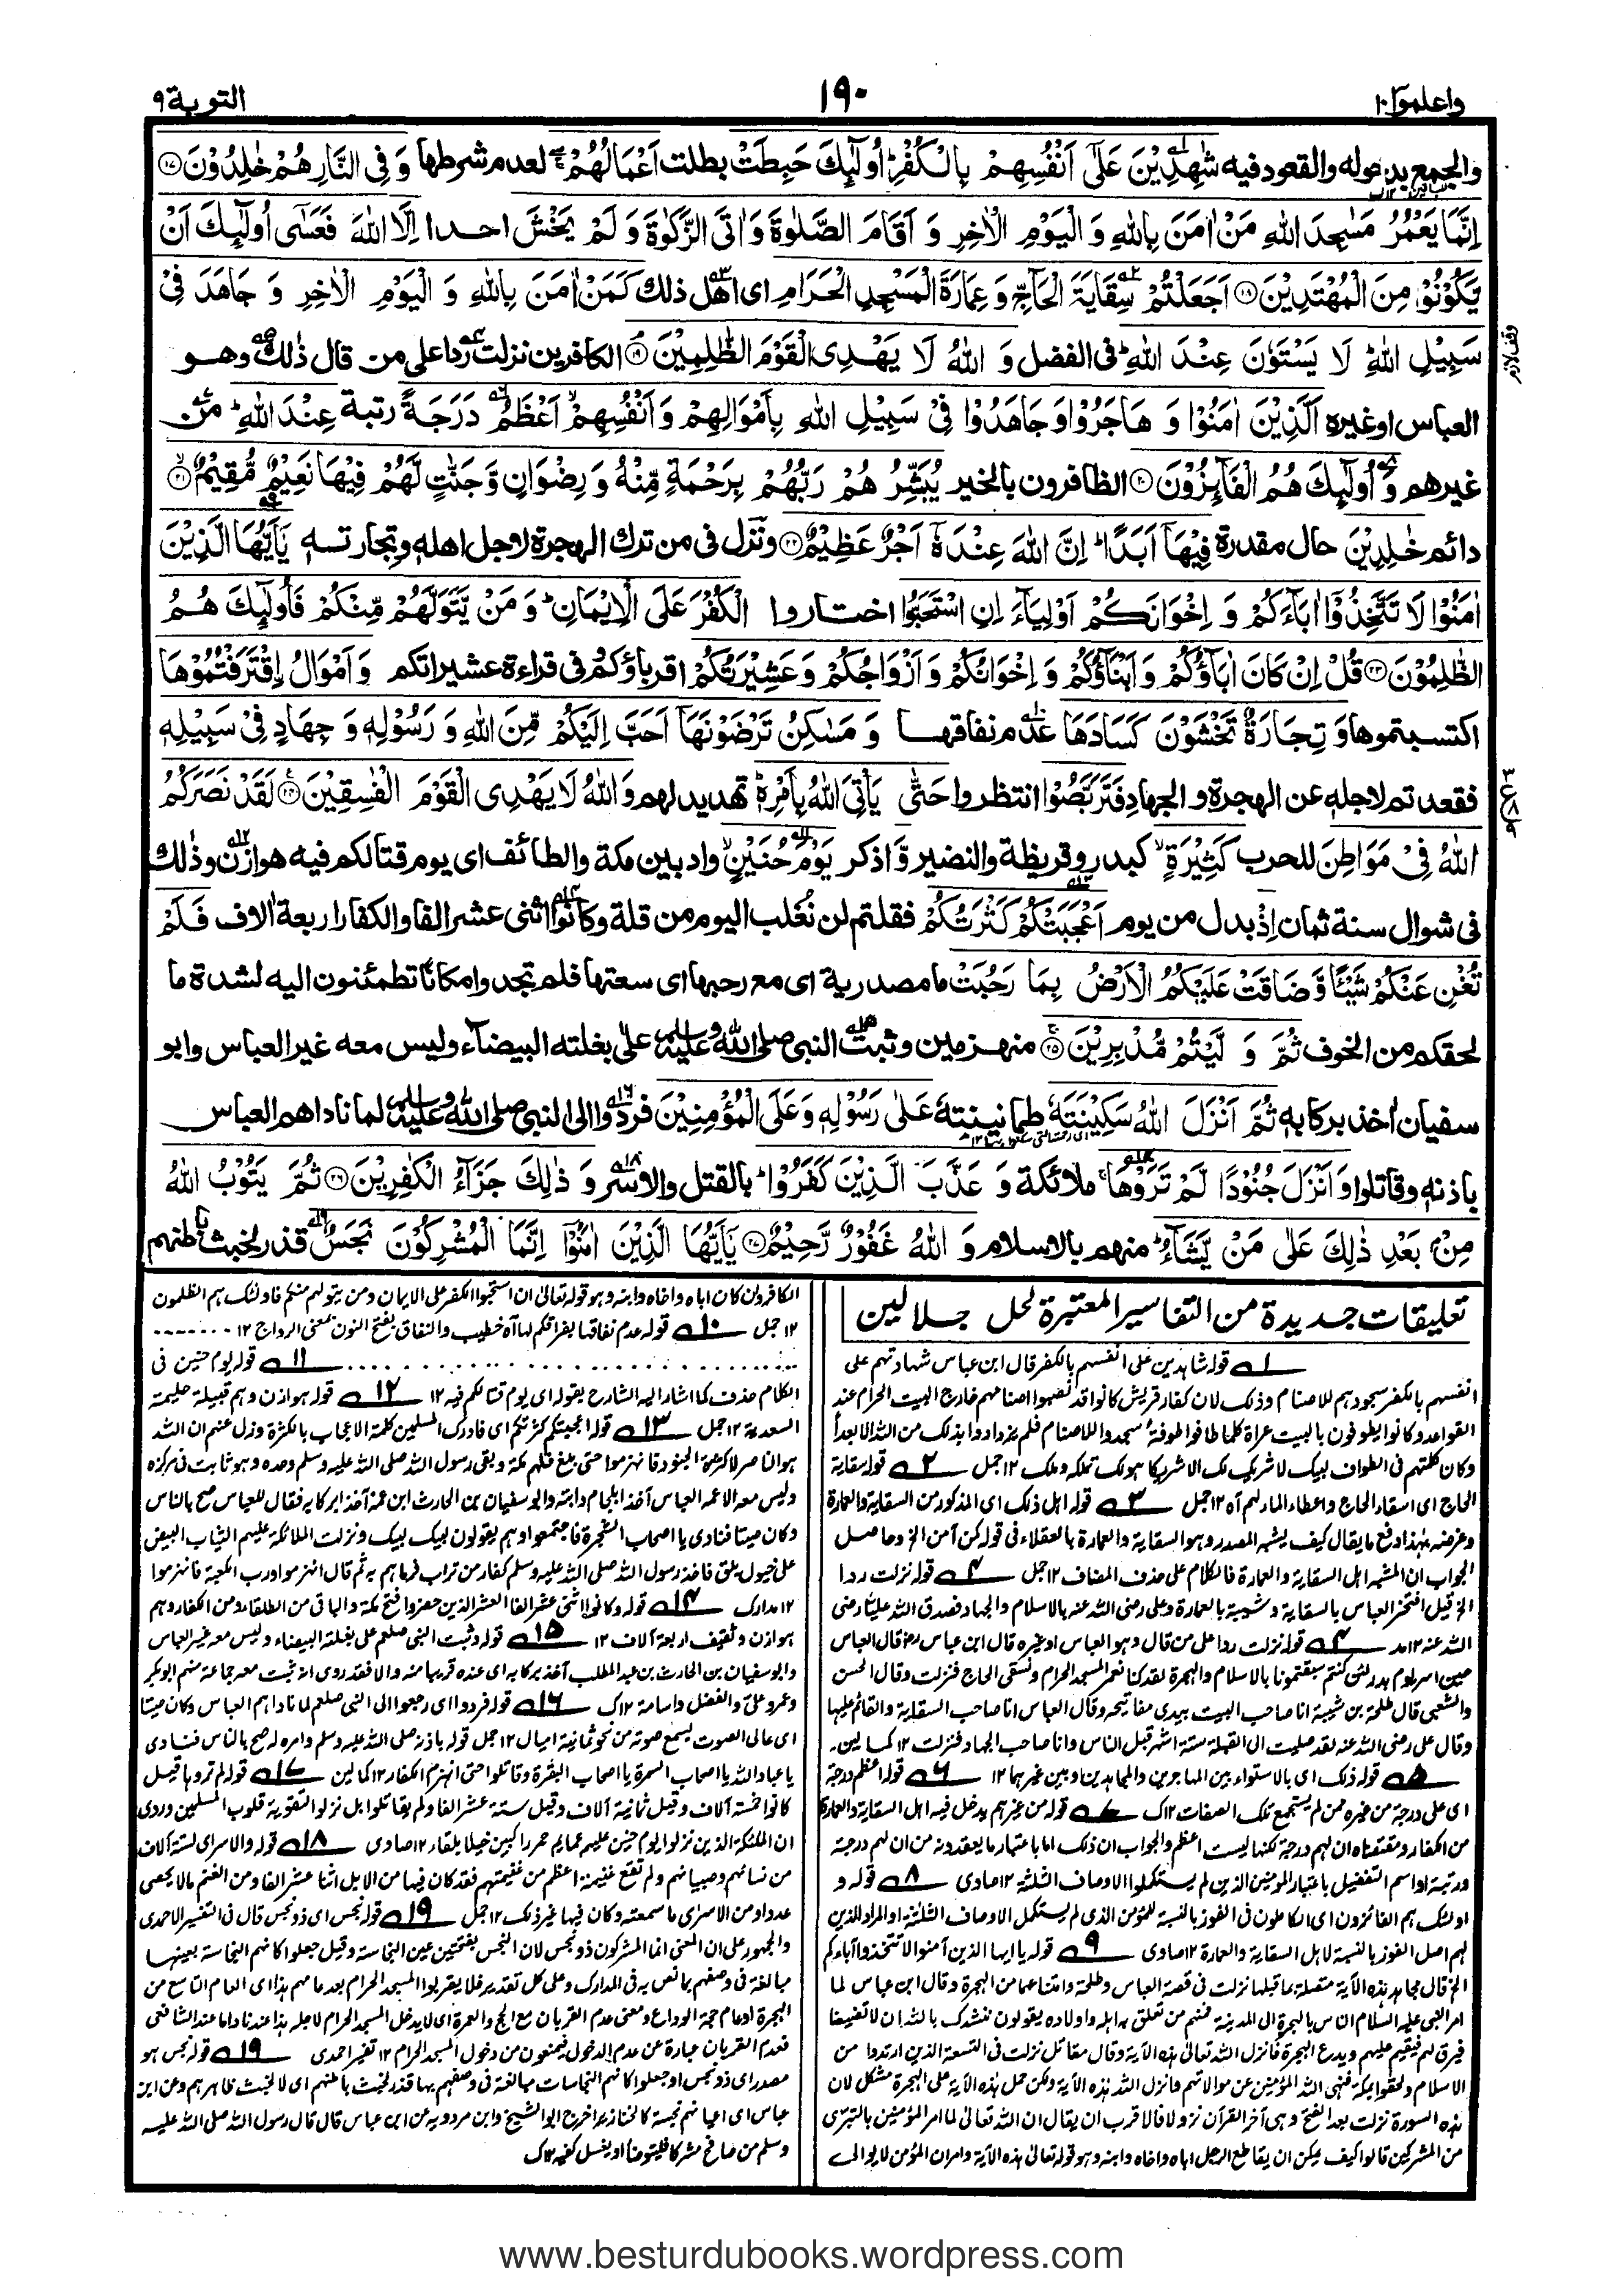 واعلموا ١٠
١٩٠
التوبة ٩
والجمع بدخوله والقعود فيه شٰهِدِيْنَ عَلٰٓى اَنْفُسِهِمْ بِالْكُفْرِ ؕ اُولٰٓئِكَ حَبِطَتْ بطلت اَعْمَالُهُمْ ۚ لعدم شرطها وَ فِى النَّارِ هُمْ خٰلِدُوْنَ ⑰
اِنَّمَا يَعْمُرُ مَسٰجِدَ اللهِ مَنْ اٰمَنَ بِاللهِ وَ الْيَوْمِ الْاٰخِرِ وَ اَقَامَ الصَّلٰوةَ وَ اٰتَى الزَّكٰوةَ وَ لَمْ يَخْشَ احدا اِلَّا اللهَ فَعَسٰٓى اُولٰٓئِكَ اَنْ
يَّكُوْنُوْا مِنَ الْمُهْتَدِيْنَ ⑱ اَجَعَلْتُمْ سِقَايَةَ الْحَآجِّ وَ عِمَارَةَ الْمَسْجِدِ الْحَرَامِ اى اهل ذلك كَمَنْ اٰمَنَ بِاللهِ وَ الْيَوْمِ الْاٰخِرِ وَ جَاهَدَ فِىْ
سَبِيْلِ اللهِ ؕ لَا يَسْتَوٗنَ عِنْدَ اللهِ ؕ فى الفضل وَ اللهُ لَا يَهْدِى الْقَوْمَ الظّٰلِمِيْنَ ⑲ الكافرين نزلت ردا على من قال ذٰلك وهو
العباس اوغيره اَلَّذِيْنَ اٰمَنُوْا وَ هَاجَرُوْا وَ جَاهَدُوْا فِىْ سَبِيْلِ اللهِ بِاَمْوَالِهِمْ وَ اَنْفُسِهِمْ ۙ اَعْظَمُ دَرَجَةً رتبة عِنْدَ اللهِ ؕ من
غيرهم وَ اُولٰٓئِكَ هُمُ الْفَآئِزُوْنَ ⑳ الظافرون بالخير يُبَشِّرُهُمْ رَبُّهُمْ بِرَحْمَةٍ مِّنْهُ وَ رِضْوَانٍ وَّ جَنّٰتٍ لَّهُمْ فِيْهَا نَعِيْمٌ مُّقِيْمٌ ㉑
دائم خٰلِدِيْنَ حال مقدرة فِيْهَآ اَبَدًا ؕ اِنَّ اللهَ عِنْدَهٗٓ اَجْرٌ عَظِيْمٌ ㉒ ونَزَل فى من ترك الهجرة لاجل اهله وتجارته يٰٓاَيُّهَا الَّذِيْنَ
اٰمَنُوْا لَا تَتَّخِذُوْٓا اٰبَآءَكُمْ وَ اِخْوَانَكُمْ اَوْلِيَآءَ اِنِ اسْتَحَبُّوا اختاروا الْكُفْرَ عَلَى الْاِيْمَانِ ؕ وَ مَنْ يَّتَوَلَّهُمْ مِّنْكُمْ فَاُولٰٓئِكَ هُمُ
الظّٰلِمُوْنَ ㉓ قُلْ اِنْ كَانَ اٰبَآؤُكُمْ وَ اَبْنَآؤُكُمْ وَ اِخْوَانُكُمْ وَ اَزْوَاجُكُمْ وَ عَشِيْرَتُكُمْ اقرباؤكم فى قراءة عشيراتكم وَ اَمْوَالُ اِۨقْتَرَفْتُمُوْهَا
اكتسبتموها وَ تِجَارَةٌ تَخْشَوْنَ كَسَادَهَا عدم نفاقها وَ مَسٰكِنُ تَرْضَوْنَهَآ اَحَبَّ اِلَيْكُمْ مِّنَ اللهِ وَ رَسُوْلِهٖ وَ جِهَادٍ فِىْ سَبِيْلِهٖ
فقعدتم لاجله عن الهجرة والجهاد فَتَرَبَّصُوْا انتظروا حَتّٰى يَأْتِىَ اللهُ بِاَمْرِهٖ ؕ تهديد لهم وَ اللهُ لَا يَهْدِى الْقَوْمَ الْفٰسِقِيْنَ ㉔ لَقَدْ نَصَرَكُمُ
اللهُ فِىْ مَوَاطِنَ للحرب كَثِيْرَةٍ ۙ كبدر وقريظة والنضير وَّ اذكر يَوْمَ حُنَيْنٍ ۙ واد بين مكة والطائف اى يوم قتالكم فيه هوازن وذلك
فى شوال سنة ثمان اِذْ بدل من يوم اَعْجَبَتْكُمْ كَثْرَتُكُمْ فقلتم لن نُغلب اليوم من قلة وكانوا اثنى عشر الفا والكفار اربعة اٰلاف فَلَمْ
تُغْنِ عَنْكُمْ شَيْئًا وَّ ضَاقَتْ عَلَيْكُمُ الْاَرْضُ بِمَا رَحُبَتْ ما مصدرية اى مع رحبها اى سعتها فلم تجدوا مكانا تطمئنون اليه لشدة ما
لحقكم من الخوف ثُمَّ وَلَّيْتُمْ مُّدْبِرِيْنَ ㉕ منهزمين وثبت النبى صلى الله عليه وسلم على بغلته البيضاء وليس معه غير العباس وابو
سفيان اٰخذ بركابه ثُمَّ اَنْزَلَ اللهُ سَكِيْنَتَهٗ طمانينته عَلٰى رَسُوْلِهٖ وَ عَلَى الْمُؤْمِنِيْنَ فردوا الى النبى صلى الله عليه وسلم لما ناداهم العباس
باذنه وقاتلوا وَ اَنْزَلَ جُنُوْدًا لَّمْ تَرَوْهَا ۚ ملائكة وَ عَذَّبَ الَّذِيْنَ كَفَرُوْا ؕ بالقتل والاسر وَ ذٰلِكَ جَزَآءُ الْكٰفِرِيْنَ ㉖ ثُمَّ يَتُوْبُ اللهُ
مِنْۢ بَعْدِ ذٰلِكَ عَلٰى مَنْ يَّشَآءُ ؕ منهم بالاسلام وَ اللهُ غَفُوْرٌ رَّحِيْمٌ ㉗ يٰٓاَيُّهَا الَّذِيْنَ اٰمَنُوْٓا اِنَّمَا الْمُشْرِكُوْنَ نَجَسٌ قذر لخبث باطنهم
وقف لازم
تعليقات جديدة من التفاسير المعتبرة لحل جلالين
١ قوله شاهدين على انفسهم بالكفر قال ابن عباس شهادتهم على
انفسهم بالكفر سجودهم للاصنام وذلك لان كفار قريش كانوا قد نصبوا اصنامهم خارج البيت الحرام عند
القواعد وكانوا يطوفون بالبيت عراة كلما طافوا طوفة سجدوا للاصنام فلم يزدادوا بذلك من الله الا بعدا
وكان كلمتهم فى الطواف لبيك لا شريك لك الا شريكا هو لك تملكه وما ملك ١٢ جمل ٢ قوله سقاية
الحاج اى اسقاء الحاج واعطاء الماء لهم اه ١٢ جمل ٣ قوله اهل ذلك اى المذكور من السقاية والعمارة
وغرضه بهذا دفع ما يقال كيف يشبه المصدر وهو السقاية والعمارة بالعقلاء فى قوله كمن آمن الخ وحاصل
الجواب ان المشبه اهل السقاية والعمارة فالكلام على حذف المضاف ١٢ جمل ٤ قوله نزلت ردا
الخ قيل افتخر العباس بالسقاية وشيبة بالعمارة وعلى رضى الله عنه بالاسلام والجهاد فصدق الله عليا رضى
الله عنه ١٢ مد ٤ قوله نزلت ردا على من قال وهو العباس او غيره قال ابن عباس رض قال العباس
حين اسر يوم بدر لئن كنتم سبقتمونا بالاسلام والهجرة لقد كنا نعمر المسجد الحرام ونسقى الحاج فنزلت وقال الحسن
والشعبى قال طلحة بن شيبة انا صاحب البيت بيدى مفاتيحه وقال العباس انا صاحب السقاية والقائم عليها
وقال على رضى الله عنه لقد صليت الى القبلة ستة اشهر قبل الناس وانا صاحب الجهاد فنزلت ١٢ كمالين۔
٥ قوله ذلك اى بالاستواء بين المهاجرين والمجاهدين وبين غيرهما ١٢ ٦ قوله اعظم درجة
اى على درجة من غيره ممن لم يستجمع تلك الصفات ١٢ك ٧ قوله من غيرهم يدخل فيه اهل السقاية والعمارة
من الكفار ومقتضاه ان لهم درجة لكنها ليست اعظم والجواب ان ذلك اما باعتبار ما يعتقدونه من ان لهم درجة
ورتبة او اسم التفضيل باعتبار المؤمنين الذين لم يستكملوا الاوصاف الثلثة ١٢ صاوى ٨ قوله و
اولئك هم الفائزون اى الكاملون فى الفوز بالنسبة للمؤمن الذى لم يستكمل الاوصاف الثلثة او المراد الذين
لهم اصل الفوز بالنسبة لاهل السقاية والعمارة ١٢ صاوى ٩ قوله يا ايها الذين آمنوا لا تتخذوا آباءكم
الخ قال مجاهد هذه الآية متصلة بما قبلها نزلت فى قصة العباس وطلحة وامتناعهما من الهجرة وقال ابن عباس لما
امر النبى عليه السلام الناس بالهجرة الى المدينة فمنهم من تعلق به اهله واولاده يقولون ننشدك بالله ان لا تضيعنا
فيرق لهم فيقيم عليهم ويدع الهجرة فانزل الله تعالى هذه الآية وقال مقاتل نزلت فى التسعة الذين ارتدوا من
الاسلام ولحقوا بمكة فنهى الله المؤمنين عن موالاتهم وانزل الله هذه الآية ولكن حمل هذه الآية على الهجرة مشكل لان
هذه السورة نزلت بعد الفتح وهى آخر القرآن نزولا فالاقرب ان يقال ان الله تعالى لما امر المؤمنين بالتبرى
من المشركين قالوا كيف يمكن ان يقاطع الرجل اباه واخاه وابنه وهو قوله تعالى هذه الآية وامر ان المؤمن لا يوالى
الكافر وان كان اباه واخاه وابنه وهو قوله تعالى ان استحبوا الكفر على الايمان ومن يتولهم منكم فاولئك هم الظلمون
١٢ جمل ١٠ قوله عدم نفاقها بفراقكم لها اه خطيب والنفاق بفتح النون بمعنى الرواج ١٢
١١ قوله يوم حنين فى
الكلام حذف كما اشار اليه الشارح بقوله اى يوم قتالكم فيه ١٢ ١٢ قوله هوازن وهم قبيلة حليمة
السعدية ١٢ جمل ١٣ قوله اعجبتكم كثرتكم اى فادرك المسلمين كلمة الاعجاب بالكثرة وزل عنهم ان الله
هو الناصر لا كثرة الجنود فانهزموا حتى بلغ فلهم مكة وبقى رسول الله صلى الله عليه وسلم وحده وهو ثابت فى مركزه
وليس معه الا عمه العباس آخذ ابلجام دابته وابو سفيان بن الحارث ابن عمه آخذ ابركابه فقال للعباس صح بالناس
وكان صيتا فنادى يا اصحاب الشجرة فاجتمعوا وهم يقولون لبيك لبيك ونزلت الملائكة عليهم الثياب البيض
على خيول بلق فاخذ رسول الله صلى الله عليه وسلم كفا من تراب فرماهم به ثم قال انهزموا ورب الكعبة فانهزموا
١٢ مدارك ١٤ قوله وكانوا اثنى عشر الفا العشر الذين حضروا فتح مكة والباقى من الطلقاء ومن الكفار وهم
هوازن وثقيف اربعة آلاف ١٢ ١٥ قوله وثبت النبى صلعم على بغلته البيضاء وليس معه غير العباس
وابو سفيان بن الحارث بن عبد المطلب آخذ بركابه اى عنده قريبا منه والا فقد روى انه ثبت معه جماعة منهم ابوبكر
وعمر وعلى والفضل واسامة ١٢ك ١٦ قوله فردوا اى رجعوا الى النبى صلعم لما ناداهم العباس وكان صيتا
اى عالى الصوت يسمع صوته من نحو ثمانية اميال ١٢ جمل قوله باذنه صلى الله عليه وسلم وامره له صح بالناس فنادى
يا عباد الله يا اصحاب السمرة يا اصحاب البقرة وقاتلوا حتى انهزم الكفار ١٢ كمالين ١٧ قوله لم تروها قيل
كانوا خمسة آلاف وقيل ثمانية آلاف وقيل ستة عشر الفا ولم يقاتلوا بل نزلوا لتقوية قلوب المسلمين وروى
ان الملئكة الذين نزلوا يوم حنين عليهم عمايم حمر راكبين خيلا بلقاء ١٢ صاوى ١٨ قوله والاسرى لستة آلاف
من نسائهم وصبيانهم ولم تقع غنيمة اعظم من غنيمتهم فقد كان فيها من الابل اثنا عشر الفا ومن الغنم مالا يحصى
عددا ومن الاسرى ما سمعته وكان فيها غير ذلك ١٢ جمل ١٩ قوله نجس اى ذو نجس قال فى التفسير الاحمدى
والجمهور على ان المعنى انما المشركون ذو نجس لان النجس بفتحتين عين النجاسة وقيل جعلوا كانهم النجاسة بعينها
مبالغة فى وصفهم بما نص به فى المدارك وعلى كل تقدير فلا يقربوا المسجد الحرام بعد عامهم هذا اى العام التاسع من
الهجرة او عام حجة الوداع ومعنى عدم القربان مع الحج والعمرة اى لا يدخل المسجد الحرام لاجله هذا عندنا واما عند الشافعى
فعدم القربان عبارة عن عدم الدخول فيمنعون من دخول المسجد الحرام ١٢ تفسير احمدى ١٩ قوله نجس هو
مصدر اى ذو نجس او جعلوا كانهم النجاسات مبالغة فى وصفهم بها قذر لخبث باطنهم اى لا لخبث ظاهرهم وعن ابن
عباس اى اعيانهم نجسة كالخنازير اخرج ابو الشيخ وابن مردويه عن ابن عباس قال قال رسول الله صلى الله عليه
وسلم من صافح مشركا فليتوضأ او يغسل كفيه ١٢ك
www.besturdubooks.wordpress.com